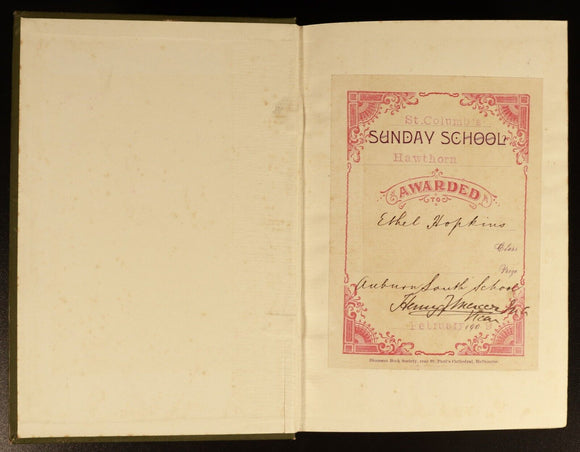 St. Columb's
SUNDAY SCHOOL
Hawthorn
AWARDED
TO
Ethel Hopkins
Class
Prize
Auburn South School
Henry F Mercer
Vicar
February
190
Diocesan Book Society, near St. Paul's Cathedral, Melbourne.